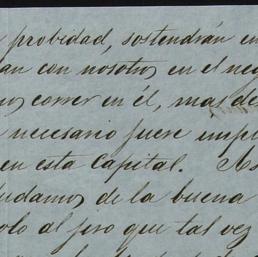 probedad, sostendrán en
an con nosotros en el neg
nos correr en él, mas de
necesario fuere impl
en esta Capital. As
udamos de la buena
olo al giro que tal vez